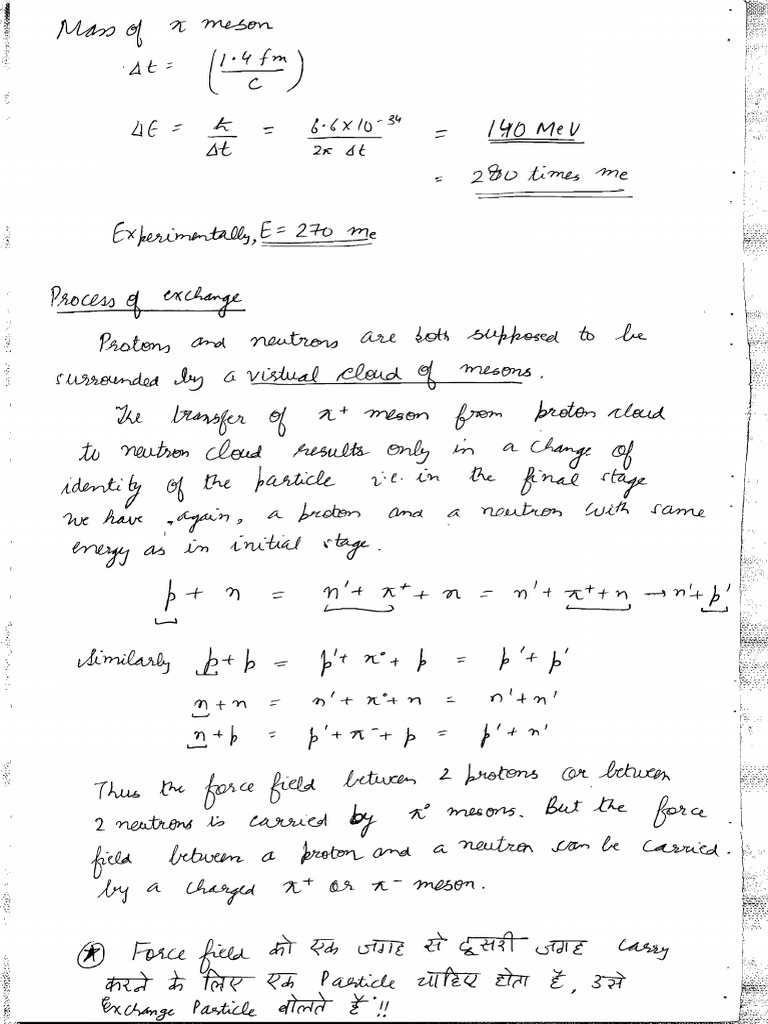 Mass of π meson
Δt = (1.4 fm / c)
ΔE = ħ/Δt = 6.6×10⁻³⁴ / 2π Δt = 140 MeV
= 280 times me
Experimentally, E = 270 me
Process of exchange
Protons and neutrons are both supposed to be
surrounded by a virtual cloud of mesons.
The transfer of π⁺ meson from proton cloud
to neutron cloud results only in a change of
identity of the particle i.e. in the final stage
we have, again, a proton and a neutron with same
energy as in initial stage.
p + n = n' + π⁺ + n = n' + π⁺ + n → n' + p'
Similarly p + p = p' + π° + p = p' + p'
n + n = n' + π° + n = n' + n'
n + p = p' + π⁻ + p = p' + n'
Thus the force field between 2 protons or between
2 neutrons is carried by π° mesons. But the force
field between a proton and a neutron can be carried
by a charged π⁺ or π⁻ meson.
★ Force field को एक जगह से दूसरी जगह carry
करने के लिए एक Particle चाहिए होता है, उसे
Exchange Particle बोलते हैं !!